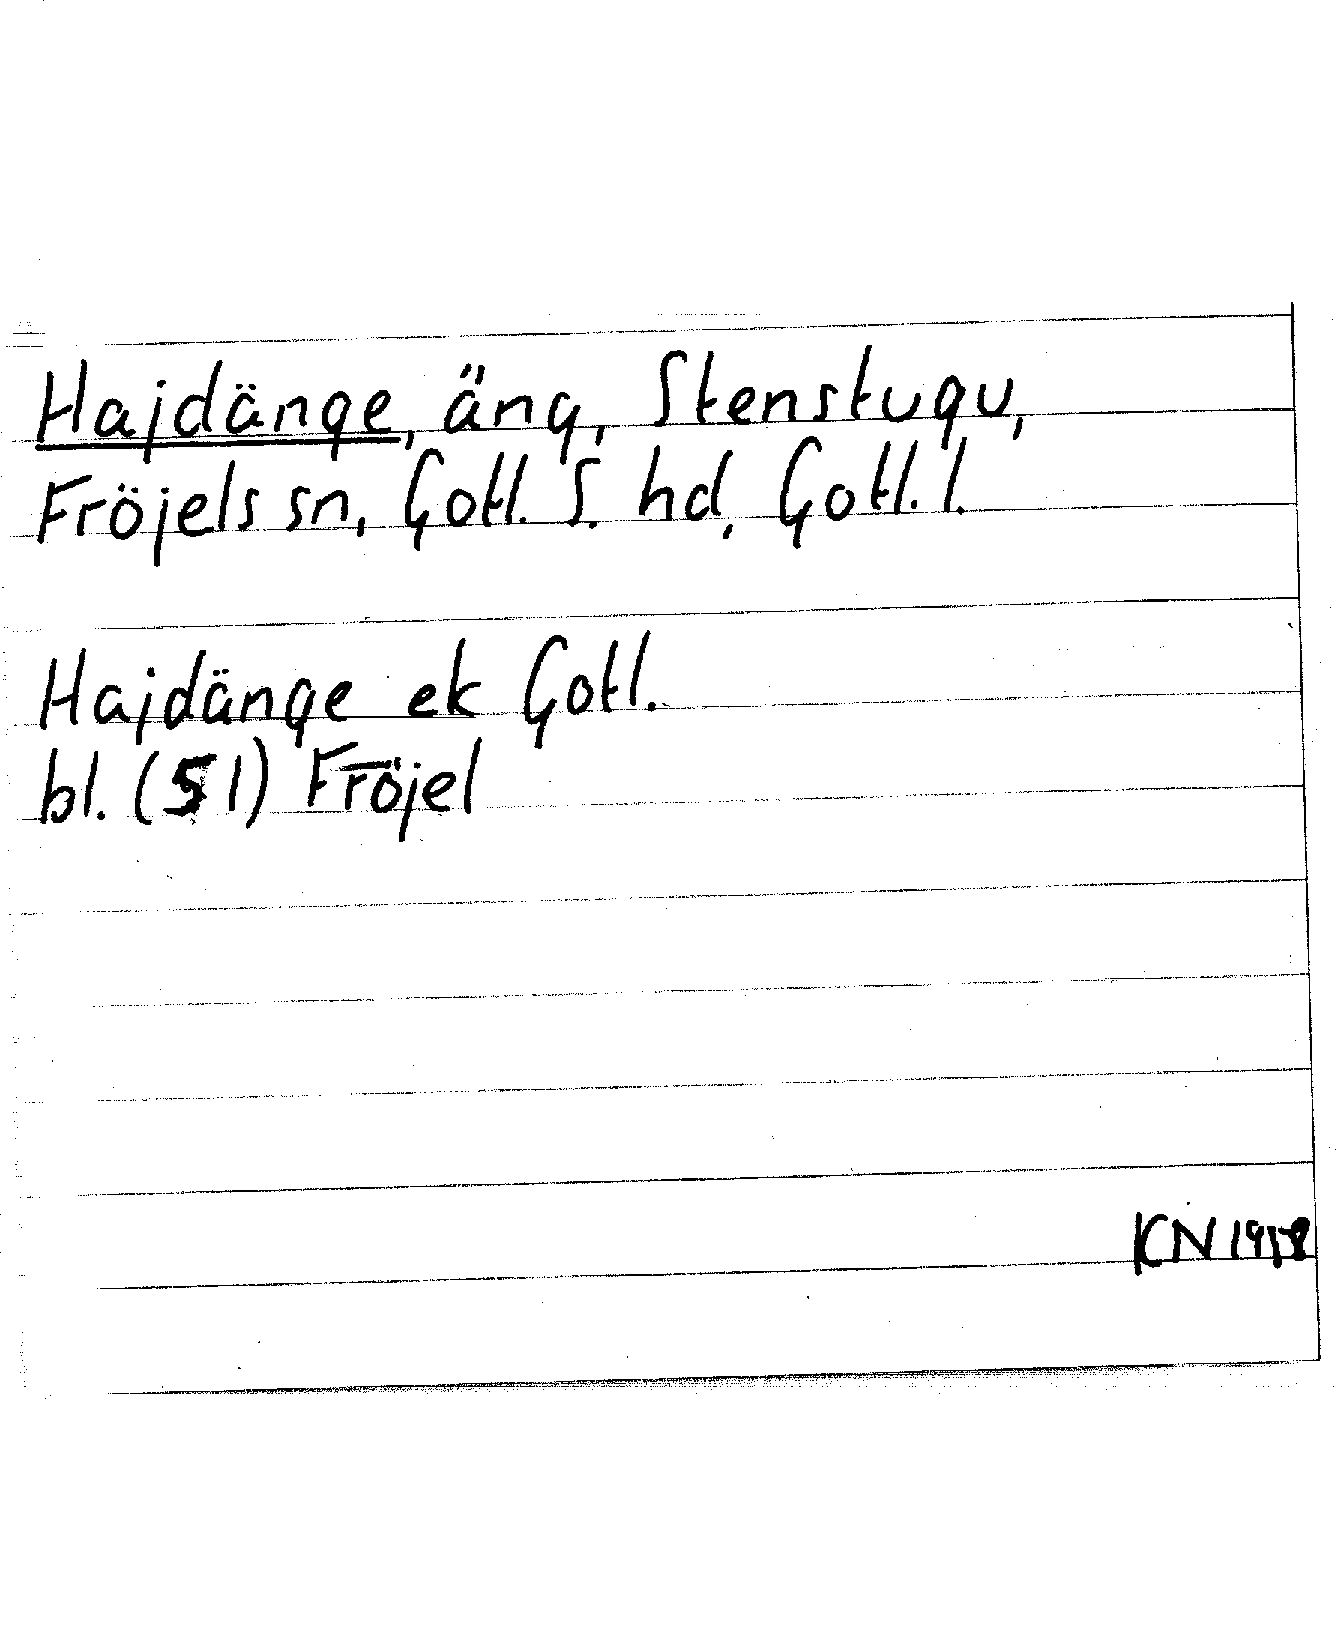 Hajdänge, äng, Stenstugu,
Fröjels sn, Gotl. S. hd, Gotl. l.
Hajdänge ek Gotl.
bl. (51) Fröjel
KN 1958